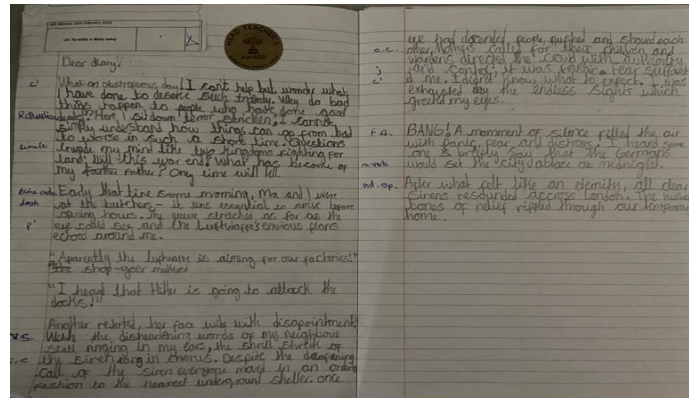 LO: To write a diary entry
HEAD TEACHER'S
AWARD
Dear diary,
What an obstreperous day! I can't help but wonder what
I have done to deserve such tragedy. Why do bad
things happen to people who have done good
Here I sit down terror stricken; I cannot
simply understand how things can go from bad
to worse in such a short time. Questions
invade my mind like two kingdoms fighting for
land; will this war end? What has become of
my father? Only time will tell.
Early that fine same morning, Ma and I were
at the butchers - it was essential to arrive before
opening hours. The queue stretched as far as the
eye could see and the Luftwaffe's envious plans
echoed around me.
"Apparently the Luftwaffe is aiming for our factories!"
the shop-goer muttered
"I heard that Hitler is going to attack the
docks!"
Another retorted, her face wide with disapointment
With the disheartening words of my neighbour
still ringing in my ears, the shrill shriek of
the siren in chorus. Despite the deafening
call of the siren everyone moved in an orderly
fashion to the nearest underground shelter. once
we had decended, people pushed and shoved each
other, mothers called for their children and
wardens directed the crowd with authority
and control; it was
me. I didn't know what to expect. I was
exhausted by the endless sights which
greeted my eyes.
BANG! A momment of silence filled the air
with panic, fear and distress. I heard some
one say that the Germans
would set the city ablaze at midnight.
After what felt like an eternity, all clear
sirens resounded accross London. The
tones of relief rippled through our temporary
home.